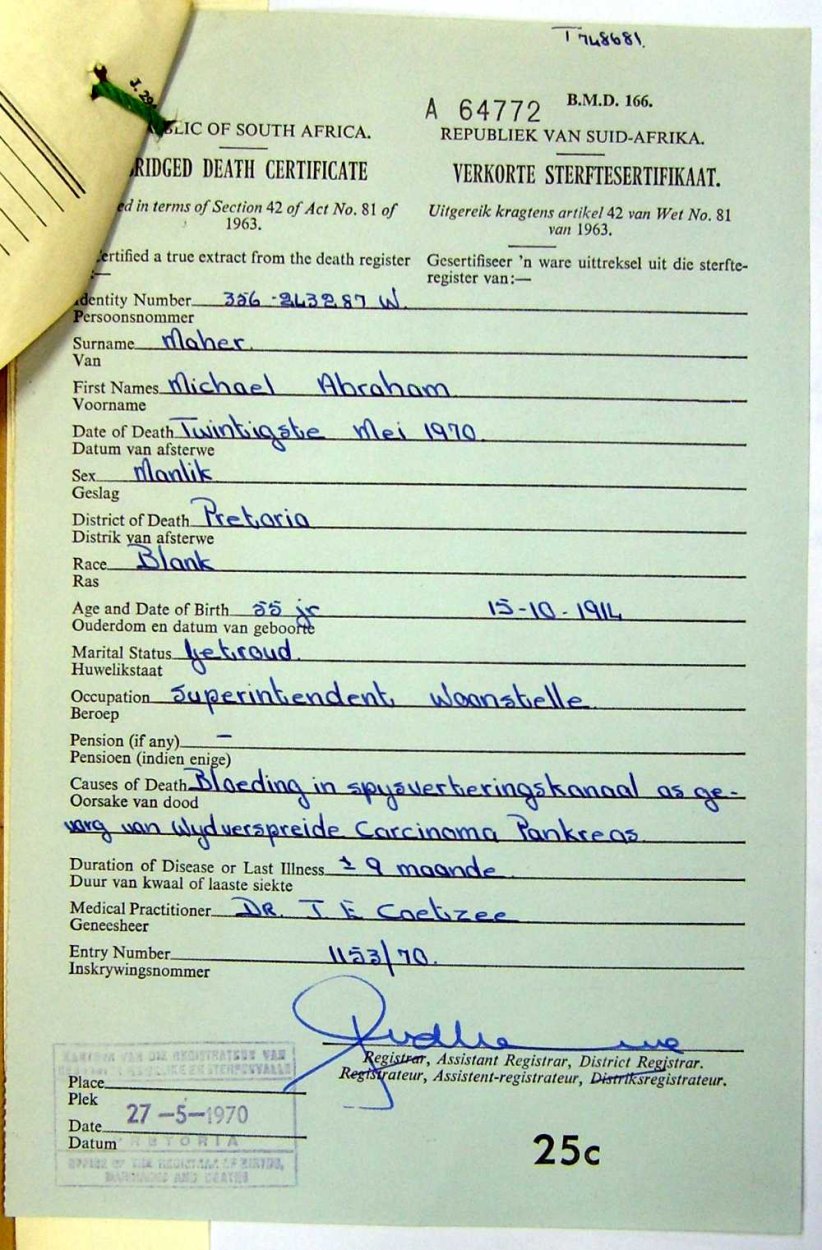 T 748681.
J. 29
A 64772 B.M.D. 166.
REPUBLIEK VAN SUID-AFRIKA.
OF SOUTH AFRICA.
DEATH CERTIFICATE
VERKORTE STERFTESERTIFIKAAT.
in terms of Section 42 of Act No. 81 of
1963.
Uitgereik kragtens artikel 42 van Wet No. 81
van 1963.
a true extract from the death register
:—
Gesertifiseer 'n ware uittreksel uit die sterfte-
register van:—
Identity Number 356-243287 W.
Persoonsnommer
Surname Maher.
Van
First Names Michael Abraham
Voorname
Date of Death Twintigste Mei 1970
Datum van afsterwe
Sex Manlik
Geslag
District of Death Pretoria
Distrik van afsterwe
Race Blank
Ras
Age and Date of Birth 55 jr 15-10-1914
Ouderdom en datum van geboorte
Marital Status Getroud.
Huwelikstaat
Occupation Superintendent Woonstelle
Beroep
Pension (if any) –
Pensioen (indien enige)
Causes of Death Bloeding in spysverteringskanaal as ge-
Oorsake van dood
volg van Wydverspreide Carcinoma Pankreas
Duration of Disease or Last Illness ± 9 maande
Duur van kwaal of laaste siekte
Medical Practitioner DR. T E Coetzee
Geneesheer
Entry Number 1153/70.
Inskrywingsnommer
Registrar, Assistant Registrar, District Registrar.
Registrateur, Assistent-registrateur, Distriksregistrateur.
KANTOOR VAN DIE REGISTRATEUR VAN
Place
Plek
27-5-1970
Date
PRETORIA
Datum
OFFICE OF THE REGISTRAR OF BIRTHS,
MARRIAGES AND DEATHS
25c